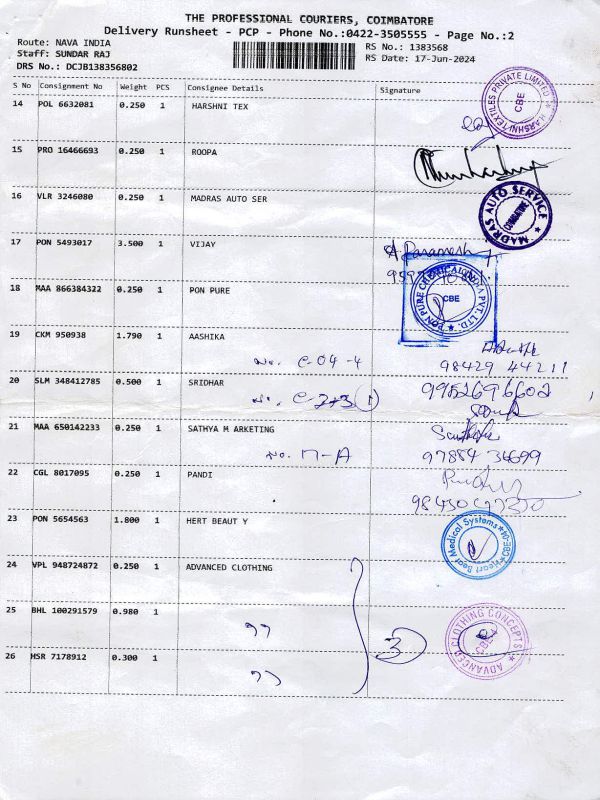 THE PROFESSIONAL COURIERS, COIMBATORE
Delivery Runsheet - PCP - Phone No.:0422-3505555 - Page No.:2
Route: NAVA INDIA
RS No.: 1383568
Staff: SUNDAR RAJ
RS Date: 17-Jun-2024
DRS No.: DCJB138356802
S No Consignment No Weight PCS Consignee Details Signature
14 POL 6632081 0.250 1 HARSHNI TEX
HARSHNI TEXTILES PRIVATE LIMITED
CBE
15 PRO 16466693 0.250 1 ROOPA
16 VLR 3246080 0.250 1 MADRAS AUTO SER
MADRAS AUTO SERVICE
COIMBATORE
17 PON 5493017 3.500 1 VIJAY
18 MAA 866384322 0.250 1 PON PURE
PON PURE CHEMICAL INDIA PVT. LTD.
CBE
19 CKM 950938 1.790 1 AASHIKA
No. C-04-4
98429 44211
20 SLM 348412785 0.500 1 SRIDHAR
9952696602
21 MAA 650142233 0.250 1 SATHYA M ARKETING
No. M-A
97884 34699
22 CGL 8017095 0.250 1 PANDI
23 PON 5654563 1.800 1 HERT BEAUT Y
Heart Beat Medical Systems
CBE-04
24 VPL 948724872 0.250 1 ADVANCED CLOTHING
25 BHL 100291579 0.980 1
,,
3
ADVANCED CLOTHING CONCEPTS
CBE
26 HSR 7178912 0.300 1
,,